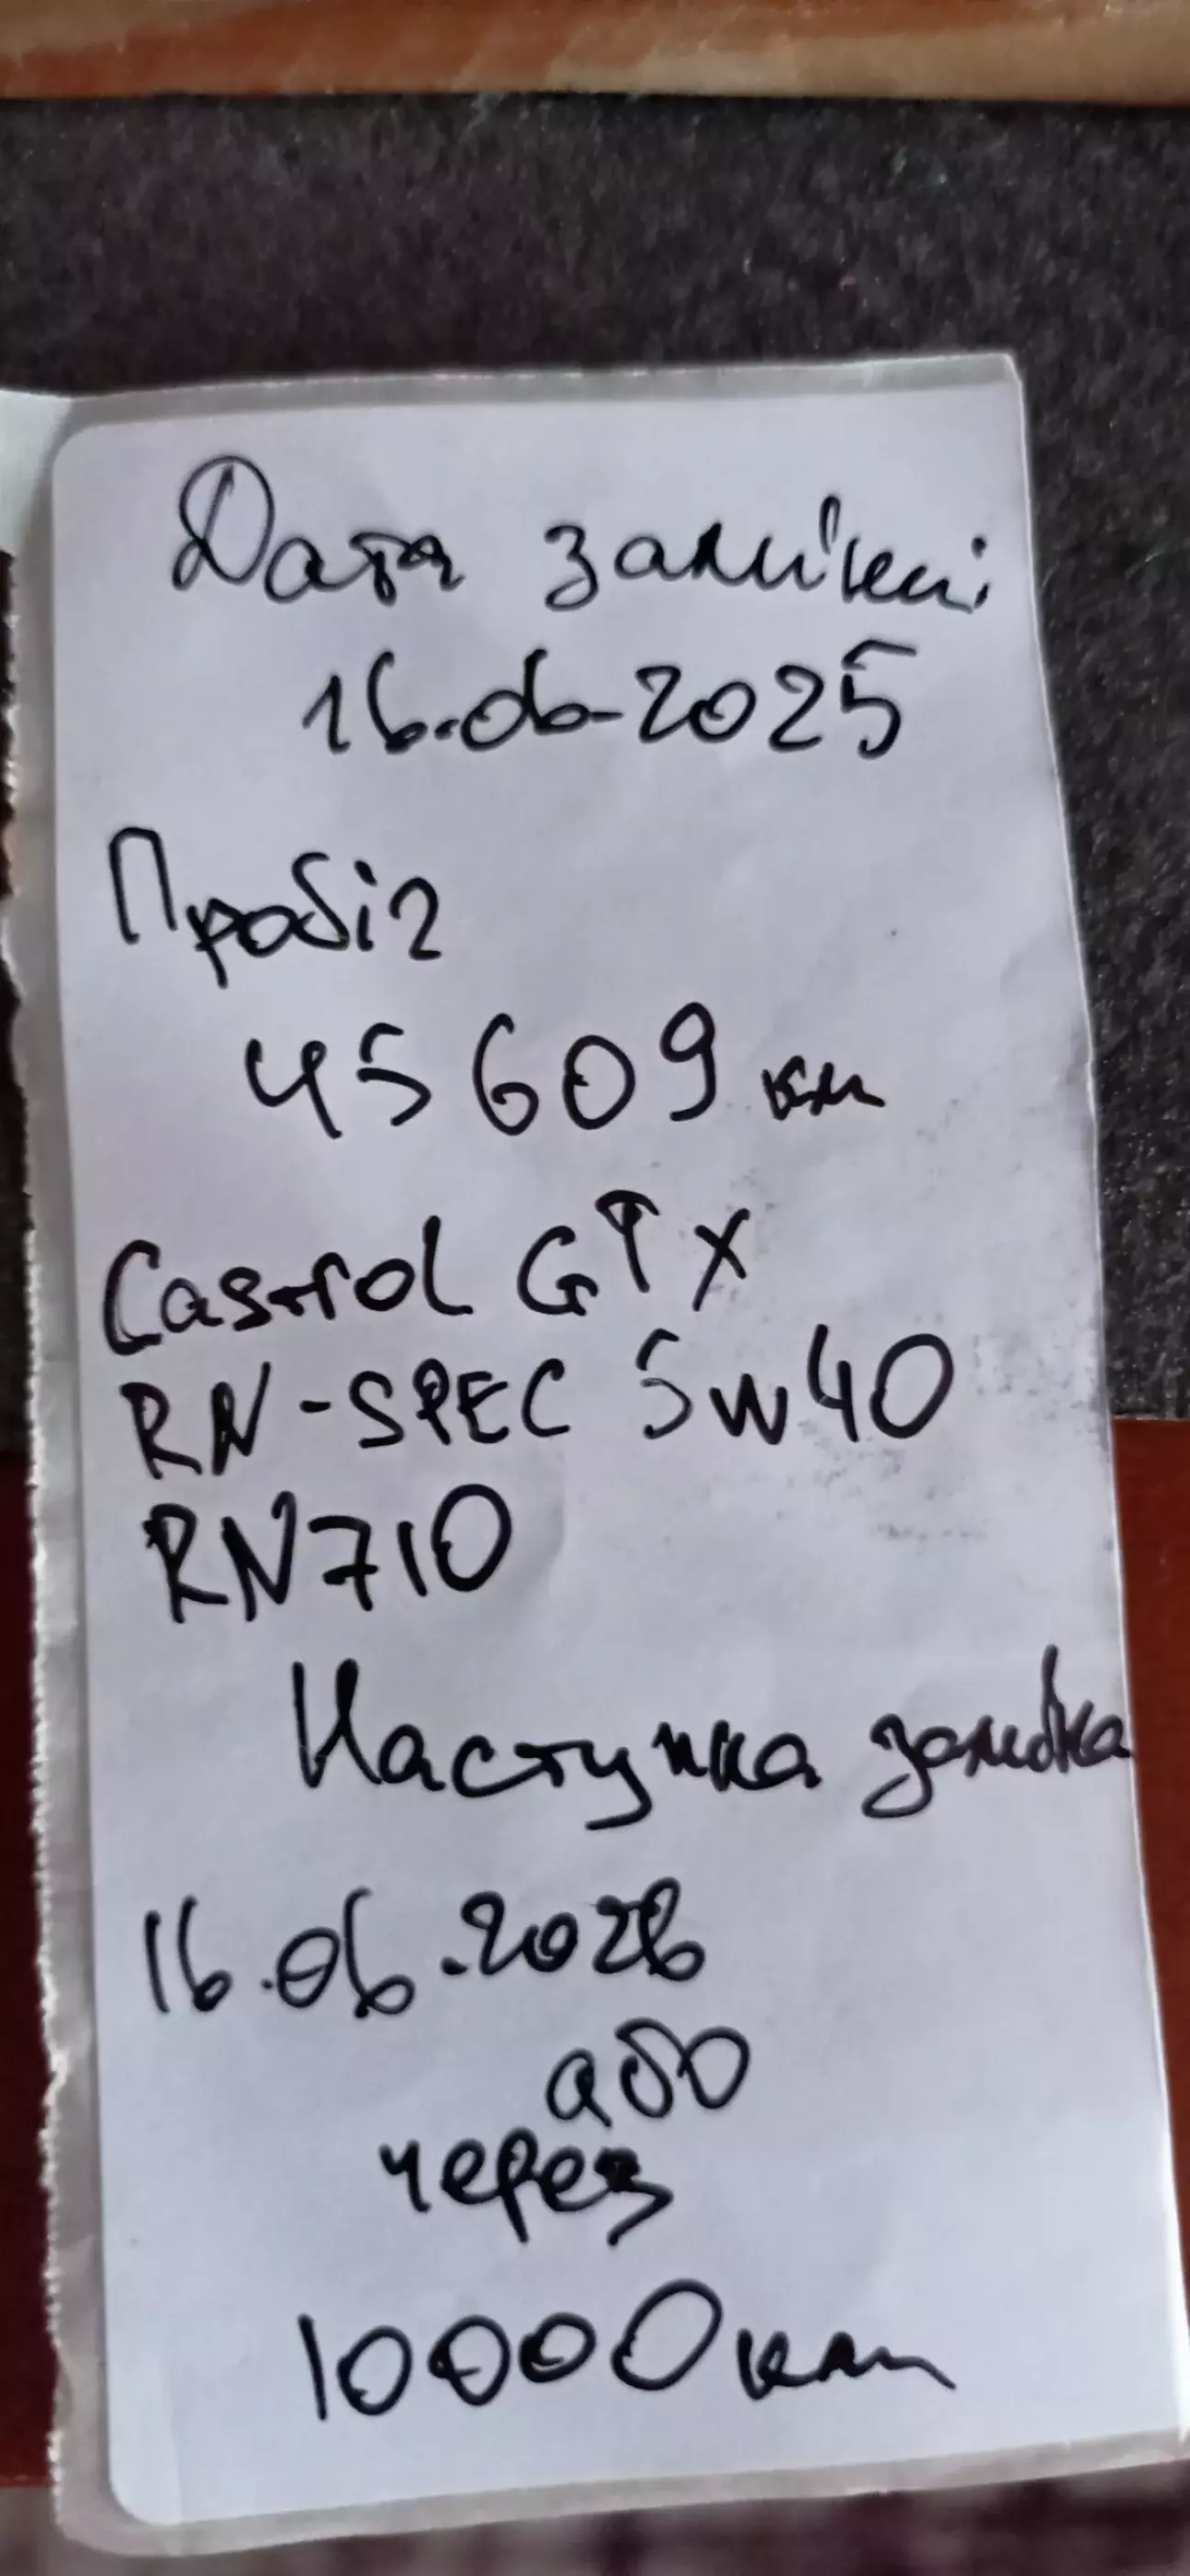 Дата заміни
16.06.2025
Пробіг
45609 км
Castrol GTX
RN-SPEC 5w40
RN710
Наступна заміна
16.06.2026
або
через
10000 км